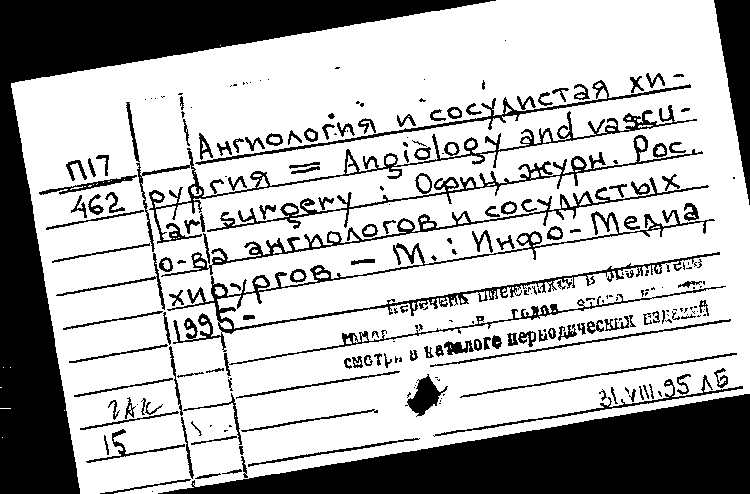 П17
462
Ангиология и сосудистая хи-
рургия = Angiology and vascu-
lar surgery : Офиц. журн. Рос.
о-ва ангиологов и сосудистых
хирургов. - М. : Инфо-Медиа,
1995-
Перечень имеющихся в библиотеке
годов
смотри в каталоге периодических изданий
15
31.VIII.95 ЛБ